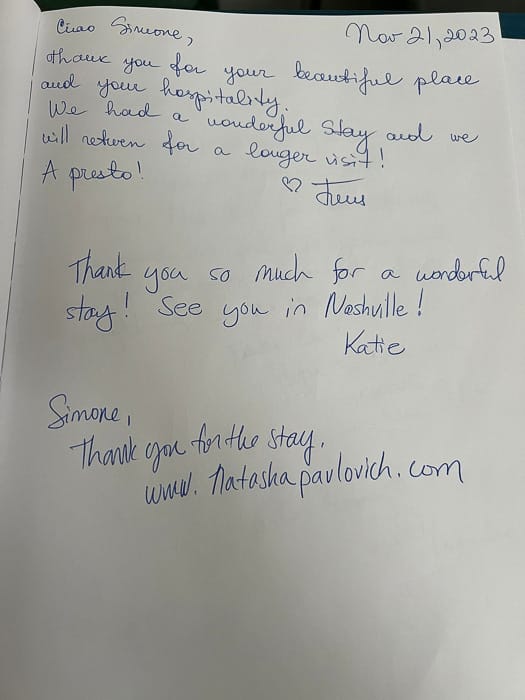 Ciao Simone,
Nov 21, 2023
thank you for your beautiful place
and your hospitality.
We had a wonderful stay and we
will return for a longer visit!
A presto!
♡
Thank you so much for a wonderful
stay! See you in Nashville!
Katie
Simone,
Thank you for the stay.
www.natashapavlovich.com